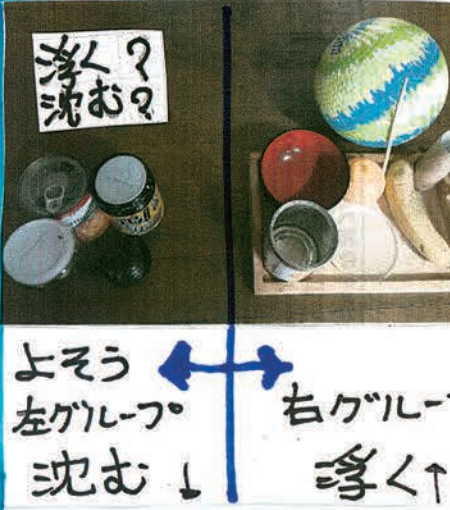 浮く?
沈む?
よそう
左グループ
沈む↓
右グルー
浮く↑